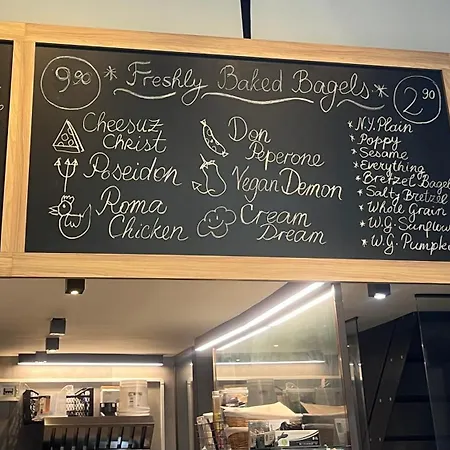 9.90 * Freshly Baked Bagels * 2.90
Cheesuz
Christ
Poseidon
Roma
Chicken
Don
Peperone
Vegan Demon
Cream
Dream
* N.Y. Plain
* Poppy
* Sesame
* Everything
* Bretzel Bagel
* Salty Bretzel
* Whole Grain
* W.G. Sunflow
* W.G. Pumpke